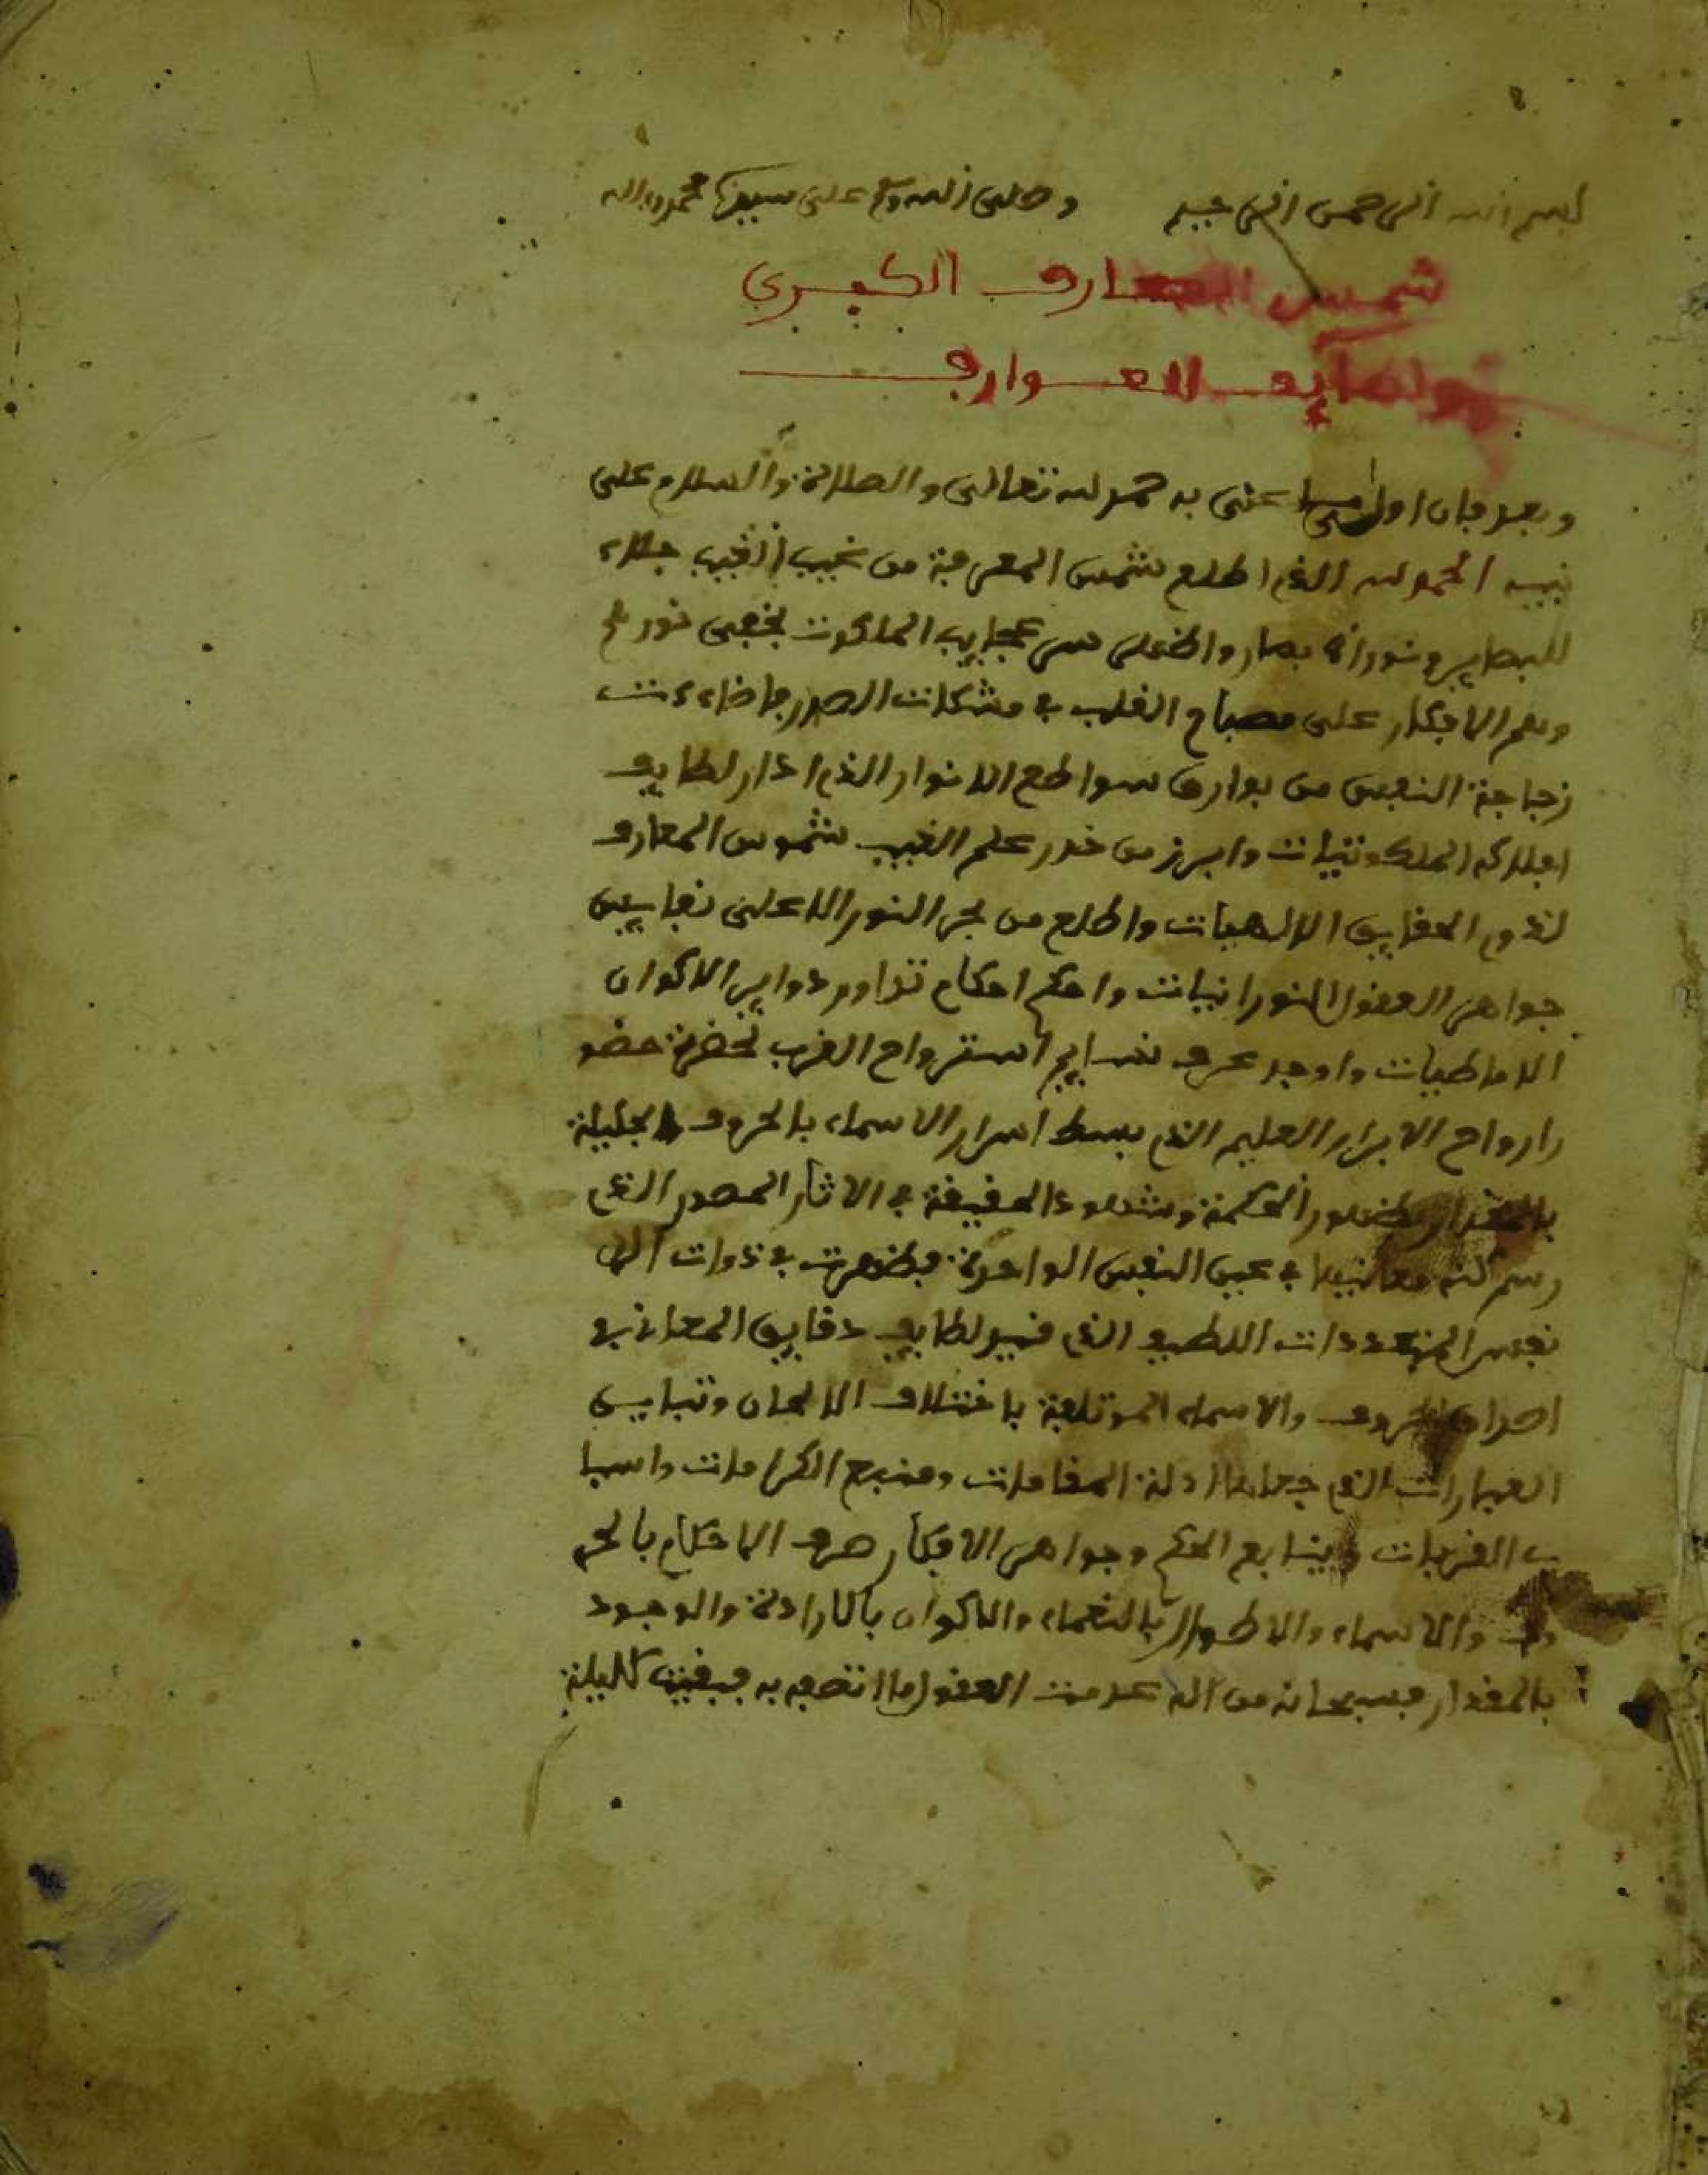 بسم الله الرحمن الرحيم وصلى الله وسلم على سيدنا محمد واله
شمس المعارف الكبرى
ولطايف العوارف
وبعد فان اول عنى به حمد لله تعالى والصلاة والسلام على
نبيه الحمد لله الذي اطلع شمس المعرفة من غيب الغيب جلاء
للبصاير ونورا بصار واظهر من عجايب الملكوت بخفى نور
الافكار على مصباح القلب في مشكات الصدر فاضاءت
زجاجة النفس من بوارق سواطع الانوار الذي ادار لطايف
افلاكه الملكوتيات وابرز من خدر علم الغيب شموس المعارف
الحقايق الالهيات واطلع من بحر النور الاعلى نفايس
جواهر العقول النورانيات واحكم احكام دواير الاكوان
الاحاطيات واوجد عرف نسايم استرواح القرب بحضرة حضو
را ارواح الابرار العليم الذي بسط اسرار الاسماء بالحروف الجليلة
بالمقدار لظهور الحكمة وشهود الحقيقة في الاثار المصدر الذي
رسم كنه معانيها في عين النفس الواحدة فظهرت في ذوات
نفس المتعددات اللطيف الذي لطايف دقايق المعاني في
اصداف الحروف والاسماء الموتلفة باختلاف الالحان وتباين
العبارات الذي جعلها ادلة المقامات ومنبع الكرامات واسبا
ب القربات وينابع الحكم وجواهر الافكار صرف الاحكام بالحر
وف والاسماء والاطوار بالنعماء والاكوان بالارادة والوجود
بالمقدار فسبحانه من اله عدمت العقول ما اتصف به فبقيت كليلة